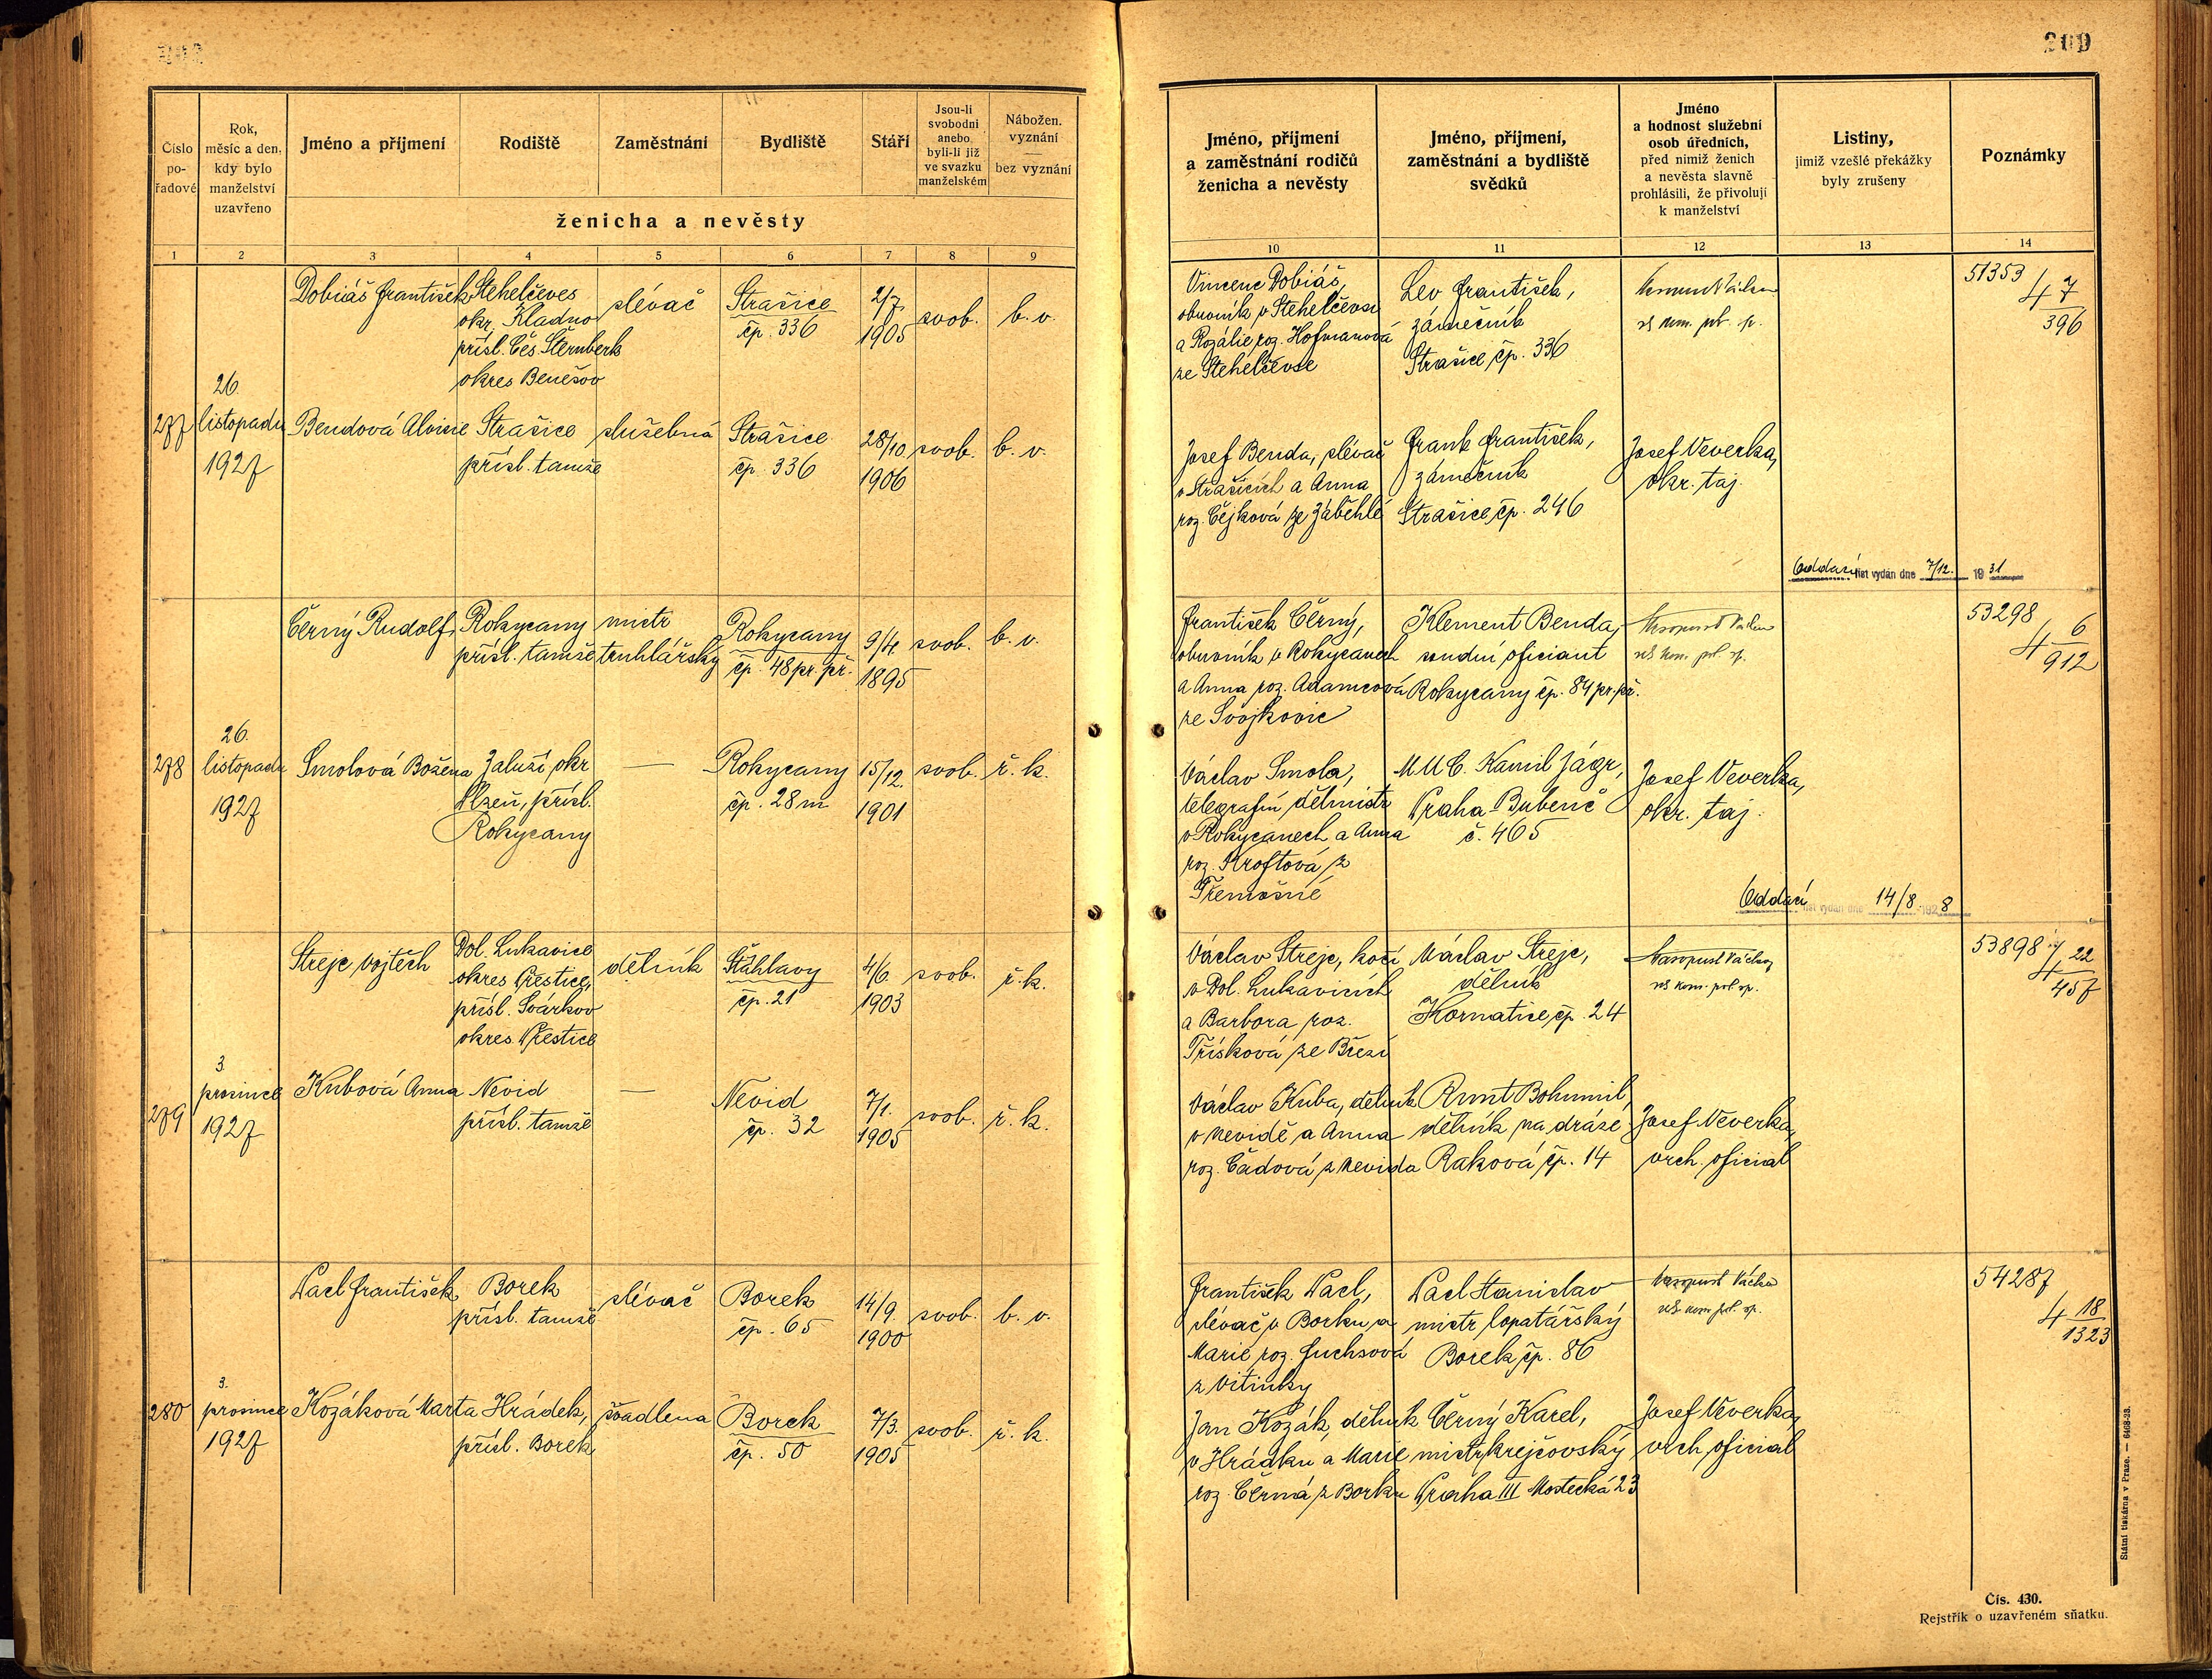 209
Číslo pořadové
Rok, měsíc a den, kdy bylo manželství uzavřeno
Jméno a příjmení
Rodiště
Zaměstnání
Bydliště
Stáří
Jsou-li svobodni anebo byli-li již ve svazku manželském
Nábožen. vyznání
bez vyznání
ženicha a nevěsty
1 2 3 4 5 6 7 8 9
Dobiáš František
Stehelčeves
okr. Kladno
přísl. Čes. Šternberk
okres Benešov
slévač
Strašice
čp. 336
2/7.
1905
svob.
b. v.
277
26.
listopadu
1927
Bendová Aloisie
Strašice
přísl. tamže
služebná
Strašice
čp. 336
28/10
1906
svob.
b. v.
Černý Rudolf
Rokycany
přísl. tamže
mistr
truhlářský
Rokycany
čp. 48 pr. př.
9/4
1895
svob.
b. v.
278
26.
listopadu
1927
Smolová Božena
Zaluží okr
Plzeň, přísl.
Rokycany
—
Rokycany
čp. 28 m
15/12.
1901
svob.
ř. k.
Strejc Vojtěch
Dol. Lukavice
okres Přestice,
přísl. Svárkov
okres Přestice
dělník
Šťáhlavy
čp. 21
4/6.
1903
svob.
ř. k.
279
3.
prosince
1927
Kubová Anna
Nevid
přísl. tamže
—
Nevid
čp. 32
7/1.
1905
svob.
ř. k.
Pacl František
Borek
přísl. tamže
slévač
Borek
čp. 65
14/9.
1900
svob.
b. v.
280
3.
prosince
1927
Kozáková Marta
Hrádek,
přísl. Borek
švadlena
Borek
čp. 50
7/3.
1905
svob.
ř. k.
Jméno, příjmení a zaměstnání rodičů ženicha a nevěsty
Jméno, příjmení, zaměstnání a bydliště svědků
Jméno a hodnost služební osob úředních, před nimiž ženich a nevěsta slavně prohlásili, že přivolují k manželství
Listiny, jimiž vzešlé překážky byly zrušeny
Poznámky
10 11 12 13 14
Vincenc Dobiáš,
obuvník v Stehelčevsi
a Rozálie roz. Hofmanová
ze Stehelčevse
Lev František,
zámečník
Strašice čp. 336
51353
4 7
396
Josef Benda, slévač
v Strašicích a Anna
roz. Čejková ze Záběhlé
Frank František,
zámečník
Strašice čp. 246
Josef Veverka,
okr. taj.
Oddací list vydán dne 7/12. 1931
František Černý,
obuvník v Rokycanech
a Anna roz. Adamcová
ze Svojkovic
Klement Benda,
soudní oficiant
Rokycany čp. 84 pr. př.
53298
4 6
912
Václav Smola,
telegrafní dělmistr
v Rokycanech a Anna
roz. Kroftová z
Třemošné
MUC. Kamil Jágr,
Praha-Bubeneč
č. 465
Josef Veverka,
okr. taj.
Oddací list vydán dne 14/8 1928
Václav Strejc, kočí
v Dol. Lukavicích
a Barbora roz.
Třísková ze Březí
Václav Strejc,
dělník
Kornatice čp. 24
Masopust Václav,
53898
4 22
457
Václav Kuba, dělník
v Nevidě a Anna
roz. Čadová z Nevida
Runt Bohumil,
dělník na dráze
Raková čp. 14
Josef Veverka,
vrch. oficial
František Pacl,
slévač v Borku a
Marie roz. Fuchsová
z Vitinky
Pacl Stanislav
mistr lopatářský
Borek čp. 86
Masopust Václav
54287
4 18
1323
Jan Kozák, dělník
v Hrádku a Marie
roz. Černá z Borku
Černý Karel,
mistr krejčovský
Praha III Mostecká 23
Josef Veverka,
vrch. oficial
Státní tiskárna v Praze. — 6468-23.
Čís. 430.
Rejstřík o uzavřeném sňatku.